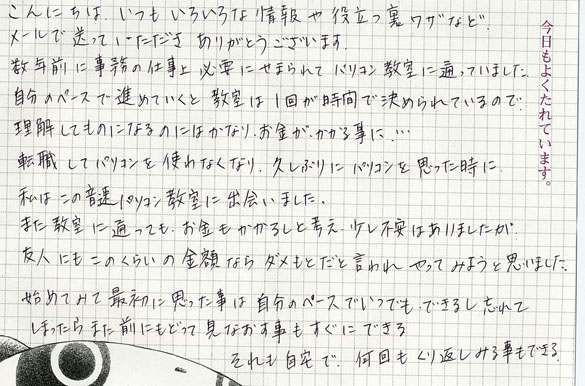 こんにちは、いつもいろいろな情報や役立つ裏ワザなど、
メールで送っていただき ありがとうございます。
数年前に事務の仕事上 必要にせまられて パソコン教室に通っていました。
自分のペースで進めていくと 教室は1回が時間で決められているので、
理解してものになるのにはかなり、お金が、かかる事に…
転職してパソコンを使わなくなり、久しぶりにパソコンを思った時に、
私はこの音速パソコン教室に出会いました。
また教室に通っても、お金もかかるしと考え、少し不安はありましたが、
友人にもこのくらいの金額ならダメもとだと言われ やってみようと思いました。
始めてみて最初に思った事は 自分のペースでいつでも、できるし 忘れて
しまったらまた前にもどって見なおす事もすぐにできる
それも自宅で、何回もくり返しみる事もできる。
今日もよくたれています。